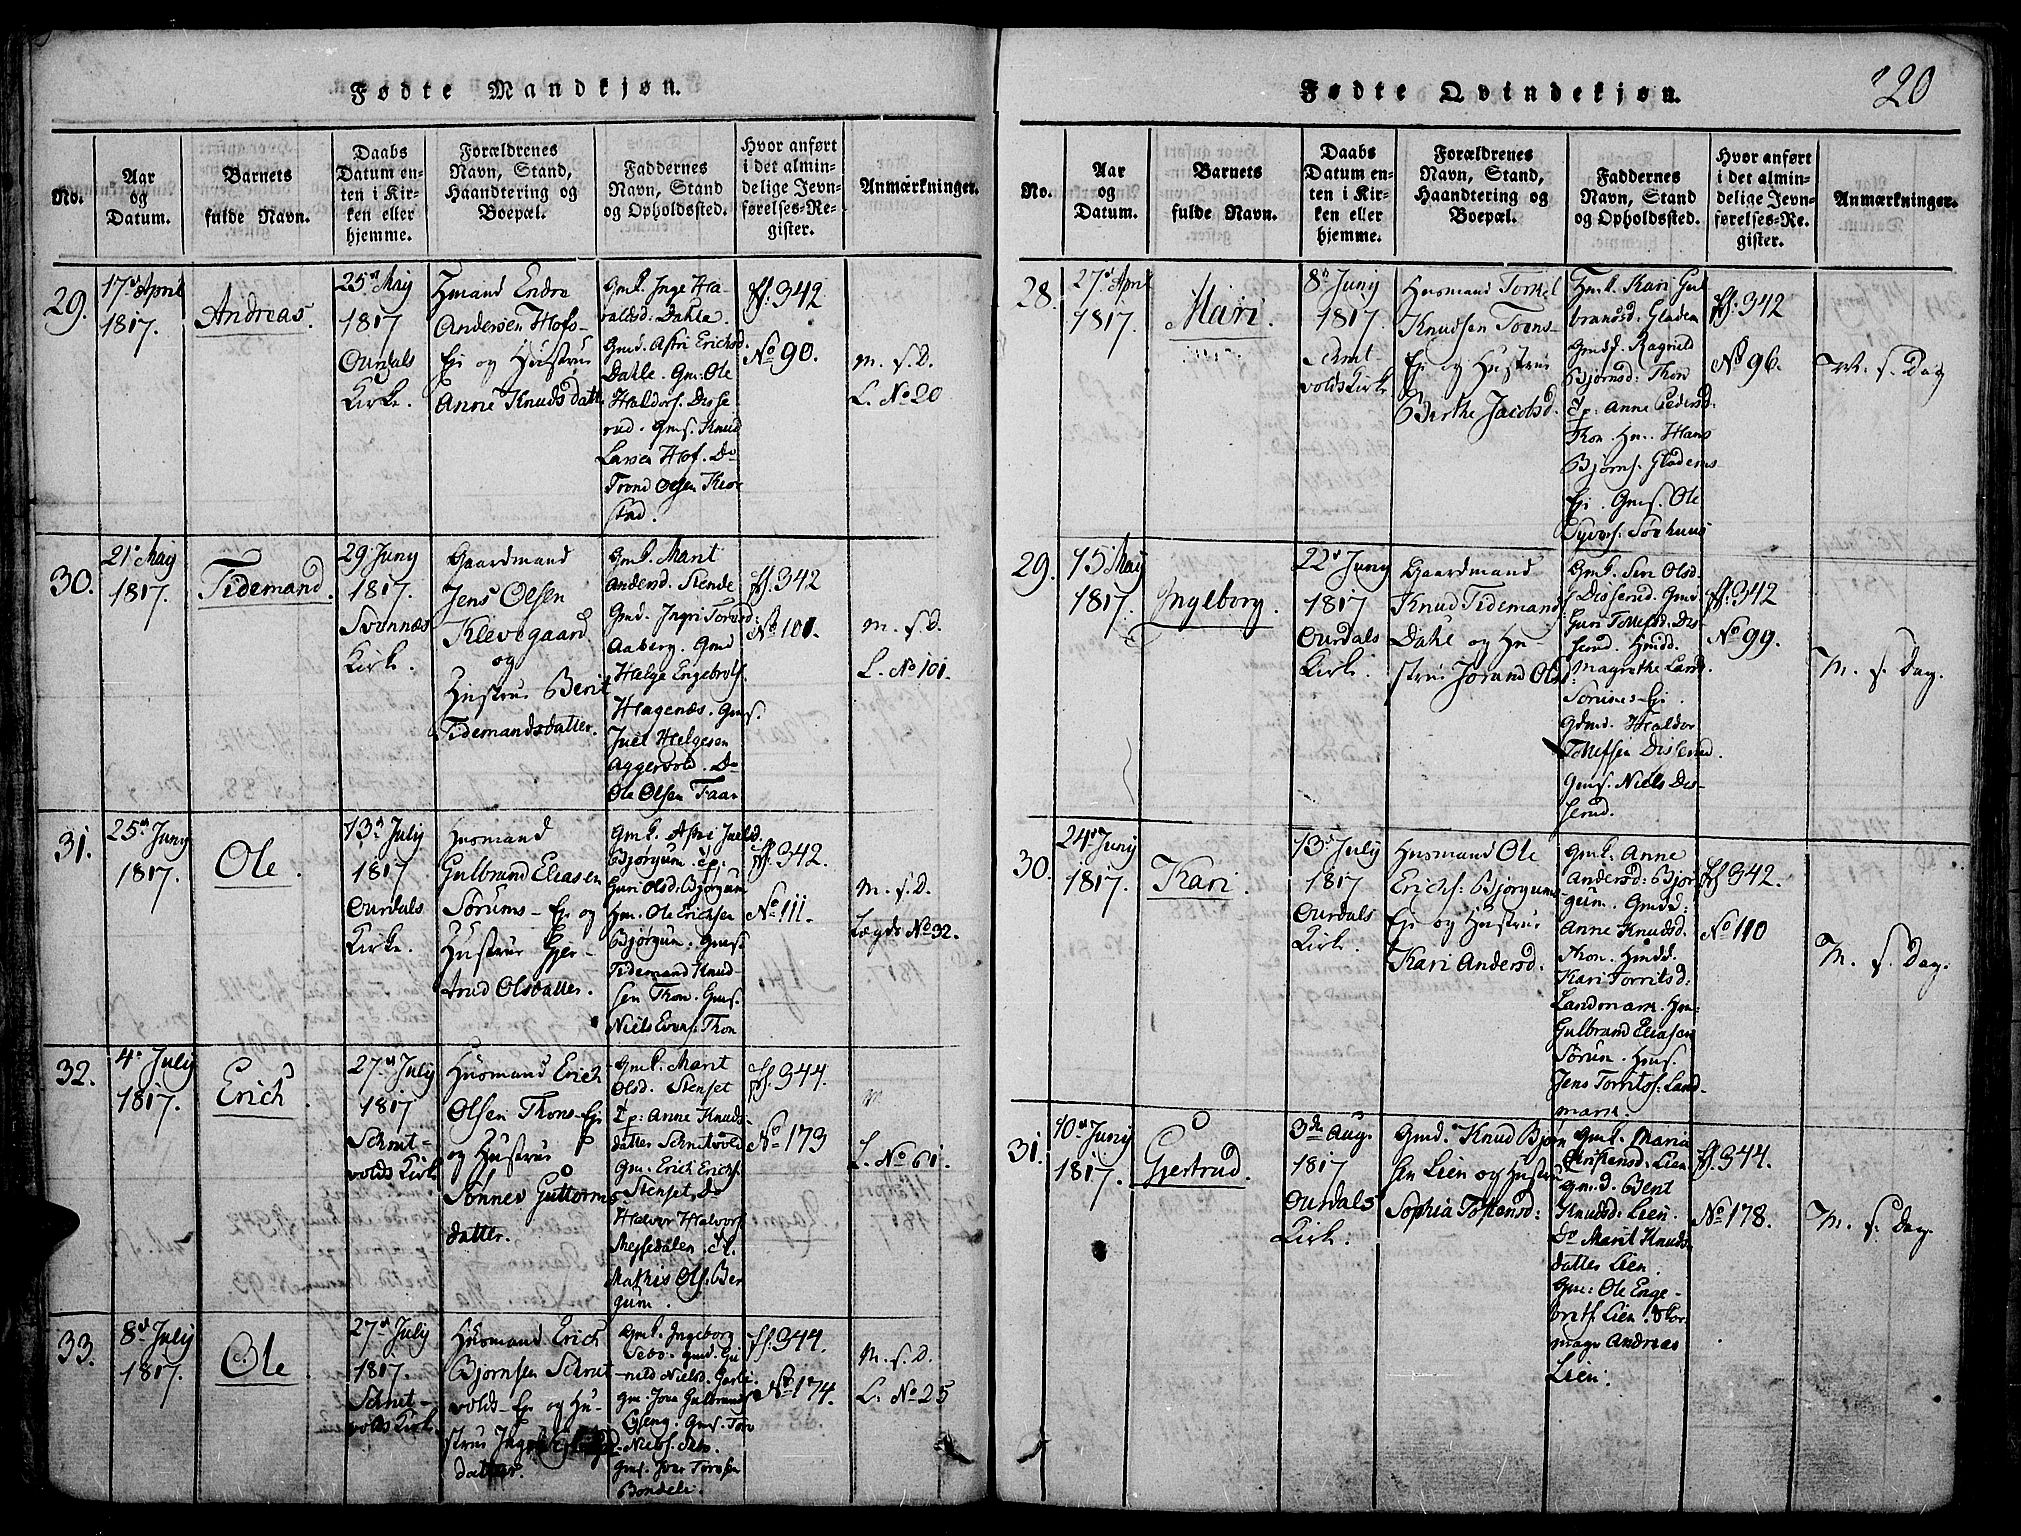 Fødte Mandkjøn.
No.
Aar
og
Datum.
Barnets
fulde Navn.
Daabs
Datum en-
ten i Kir-
ken eller
hjemme.
Forældrenes
Navn, Stand,
Haandtering og
Boepæl.
Faddernes
Navn, Stand
og Opholdssted.
Hvor anført
i det almin-
delige Jevn-
førelses-Re-
gister.
Anmærkninger.
29.
17de April
1817.
Andreas.
25de May
1817
Ourdals
Kirke.
Hmand Endre
Andersen Hofs-
Eje og Hustrue
Anne Knudsdatt
Gmk. Inge Ha-
raldsd: Dahle.
Gmd. Astri Erichsd.
Dahle. Gm: Ole
Haldors. Disse
rud. Gms. Knud
Larsen Hof. Do
Trond Olsen
stad.
ff. 342
No 90.
m. s. D.
L. No 20
30.
21de May
1817.
Tidemand.
29 Juny
1817.
Svennæs
Kirke.
Gaardmand
Jens Olsen
Klevegaard
og
Hustrue Berit
Tidemandsdatter.
Gmk. Marit
Andersd. Stende
Gmd. Ingri
Aaberg. Gmd
Helge Engebrets.
Hagenæs. Gms.
Juel Helgesen
Aggervold. Do
Ole Olsen Faar
ff. 342
No 101.
m. s. D.
L. No 101.
31.
25de Juny
1817.
Ole
13de July
1817
Ourdals
Kirke.
Husmand
Gulbrand Eliasen
Sørums-Eje og
Hustrue Gjer-
trud Olsdatter.
Gmk. Astri Juelsd.
Bjørgum. Tp:
Guri Olsd. Bjørgum
Hm. Ole Erichsen
Bjørgum. Gms.
Tidemand Knud-
sen Thon. Gms.
Niels Evens. Thon
ff. 342.
No 111.
m. s. D.
Lægds No 32.
32.
4de July
1817.
Erich
27de July
1817
Schrut-
volds Kirk
Husmand Erich
Olsen Thons-Eje
og Hustrue
Sønnev Guttorms
datter.
Gmk. Marit
Olsd. Stenset
Tp: Anne Knuds-
datter Schrutvold
Gm. Erich Erichs.
Stenset. Do
Halvor Halvors.
Messedalen. Tk.
Mathis Ols. Bør
gum.
ff. 344.
No 173
m
L. No 61.
33.
8de July
1817.
Ole
27de July
1817.
Schrut-
volds Kirk.
Husmand Erich
Bjørnsen Schrut
volds-Eje og Hu-
strue
datter.
Gmk. Ingeborg
Sebo. Gmd. Gu-
nild Nielsd.
Gm. Joen Gulbrands.
Gms. Tore
Niels. Sebo.
Gms. Iver Toresen
Bondele.
ff. 344.
No 174.
m. s. D.
L. No 25
Fødte Qvindekjøn.
220
No.
Aar
og
Datum.
Barnets
fulde Navn.
Daabs
Datum en-
ten i Kir-
ken eller
hjemme.
Forældrenes
Navn, Stand,
Haandtering og
Boepæl.
Faddernes
Navn, Stand
og Opholdssted.
Hvor anført
i det almin-
delige Jevn-
førelses-Re-
gister.
Anmærkninger.
28.
27de April
1817.
Mari.
8de Juny
1817.
Schrut-
volds Kirke
Husmand Torkel
Knudsen Tons-
Eje og Hustrue
Birthe Jacobsd.
Hmk. Kari Gul
brandsd: Gladem
Gmds. Ragnild
Bjørnsd: Thon
Tp: Anne Pedersd.
Thon. Hm. Hans
Bjørns. Gladems
Eje. Gms. Ole
Syvers. Sørhuus
ff. 342
No 96.
M. s. Dag
29.
15de May
1817.
Ingeborg.
22de Juny
1817
Ourdals
Kirke.
Gaardmand
Knud Tidemands.
Dahle og Hu-
strue Jørand Olsd.
Gmk. Siri Olsd.
Disserud. Gmd.
Guri Tollefsd. Dis-
serud. Hmdd.
Magrethe Land.
Sørums-Eje.
Gdmd. Haldor
Tollefsen Disserud
Gms. Niels Dis-
serud.
ff. 342
No 99.
M. s. Dag.
30.
24de Juny
1817.
Kari.
13de July
1817
Ourdals
Kirk.
Husmand Ole
Erichs: Bjørgums-
Eje og Hustrue
Kari Andersd.
Gmk. Anne
Andersd: Bjør-
gum. Gmdd:
Anne Knudsd.
Thon. Hmdd.
Kari Torritsd:
Landmark. Hm:
Gulbrand Eliasen
Sørum. Hms.
Jens Torrits. Land-
mark.
ff 342.
No 110
M. s. Dag.
31.
10de Juny
1817.
Gjertrud.
3de Aug.
1817
Ourdals
Kirk.
Gmd. Knud Bjørn
sen Lien og Hustrue
Sophia Tostensd:
Gmk. Maria
Christensd: Lien
Gmd. Berit
Knudsd: Lien.
Do Marit Knuds
datter Lien.
Gm: Ole Enge-
brits. Lien. Skor-
mager Andreas
Lien.
ff. 344.
No 178.
M. s. Dag.